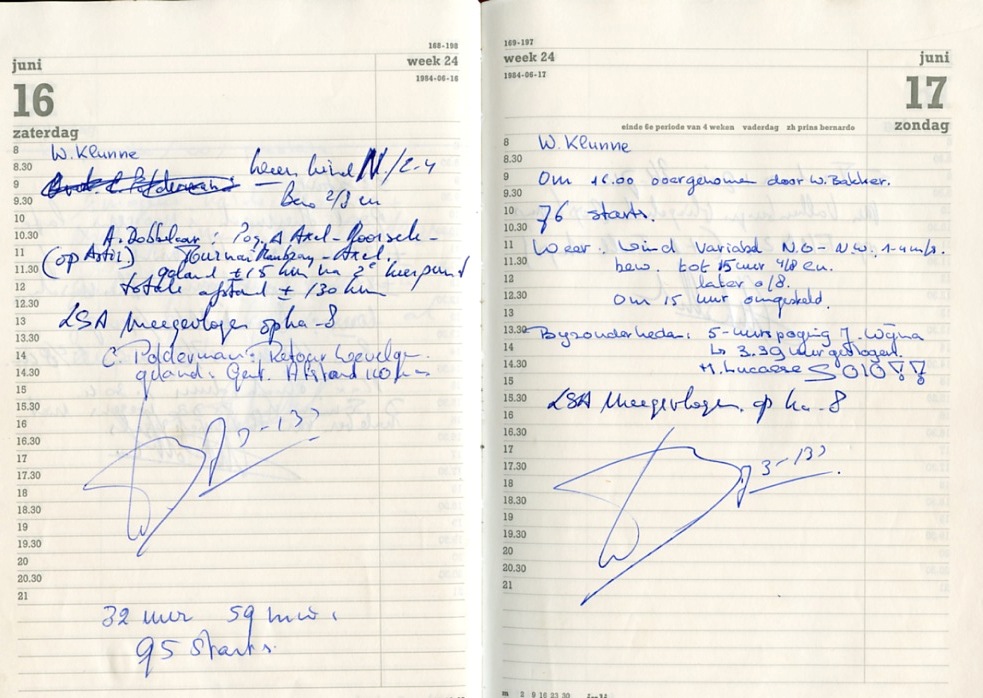 168-198
juni
week 24
1984-06-16
16
zaterdag
8 W. Klunne
8.30
9
9.30
10
10.30 A. Dobbelaar: Pog. A Axel-Moorsele-
11 (op Astir)
11.30 geland ± 15 km na 2e keerpunt
12 totale afstand ± 130 km
12.30
13 LSA meegevlogen op ka-8
13.30
14 C. Polderman: Retour Wevelgem
14.30 geland: Gent. Afstand
15
15.30
16
16.30 3-133
17
17.30
18
18.30
19
19.30
20
20.30
21
32 uur 59 min.
95 Starts.
169-197
week 24
juni
1984-06-17
17
einde 6e periode van 4 weken vaderdag zh prins bernardo
zondag
8 W. Klunne
8.30
9 Om 16.00 overgenomen door W. Bakker.
9.30
10 76 starts.
10.30
11 Weer: wind variabel N.O - N.W. 1-4 m/s.
11.30 bew. tot 15 uur 4/8 en.
12 later 0/8.
12.30 Om 15 uur omgesteld.
13
13.30 Byzonderheden: 5-uurspoging J. Wijna
14 ↳ 3.39 uur gevlogen.
14.30 M. Lucasse SOLO!!
15
15.30 LSA meegevlogen op ka-8
16
16.30
17 3-133
17.30
18
18.30
19
19.30
20
20.30
21
m 2 9 16 23 30